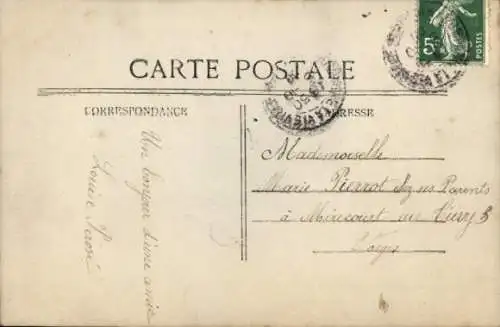 CARTE POSTALE
CORRESPONDANCE
ADRESSE
Un bonjour d'une amie
Louise
Mademoiselle
Marie Pierrot chez ses Parents
à Mirecourt
Vosges
5